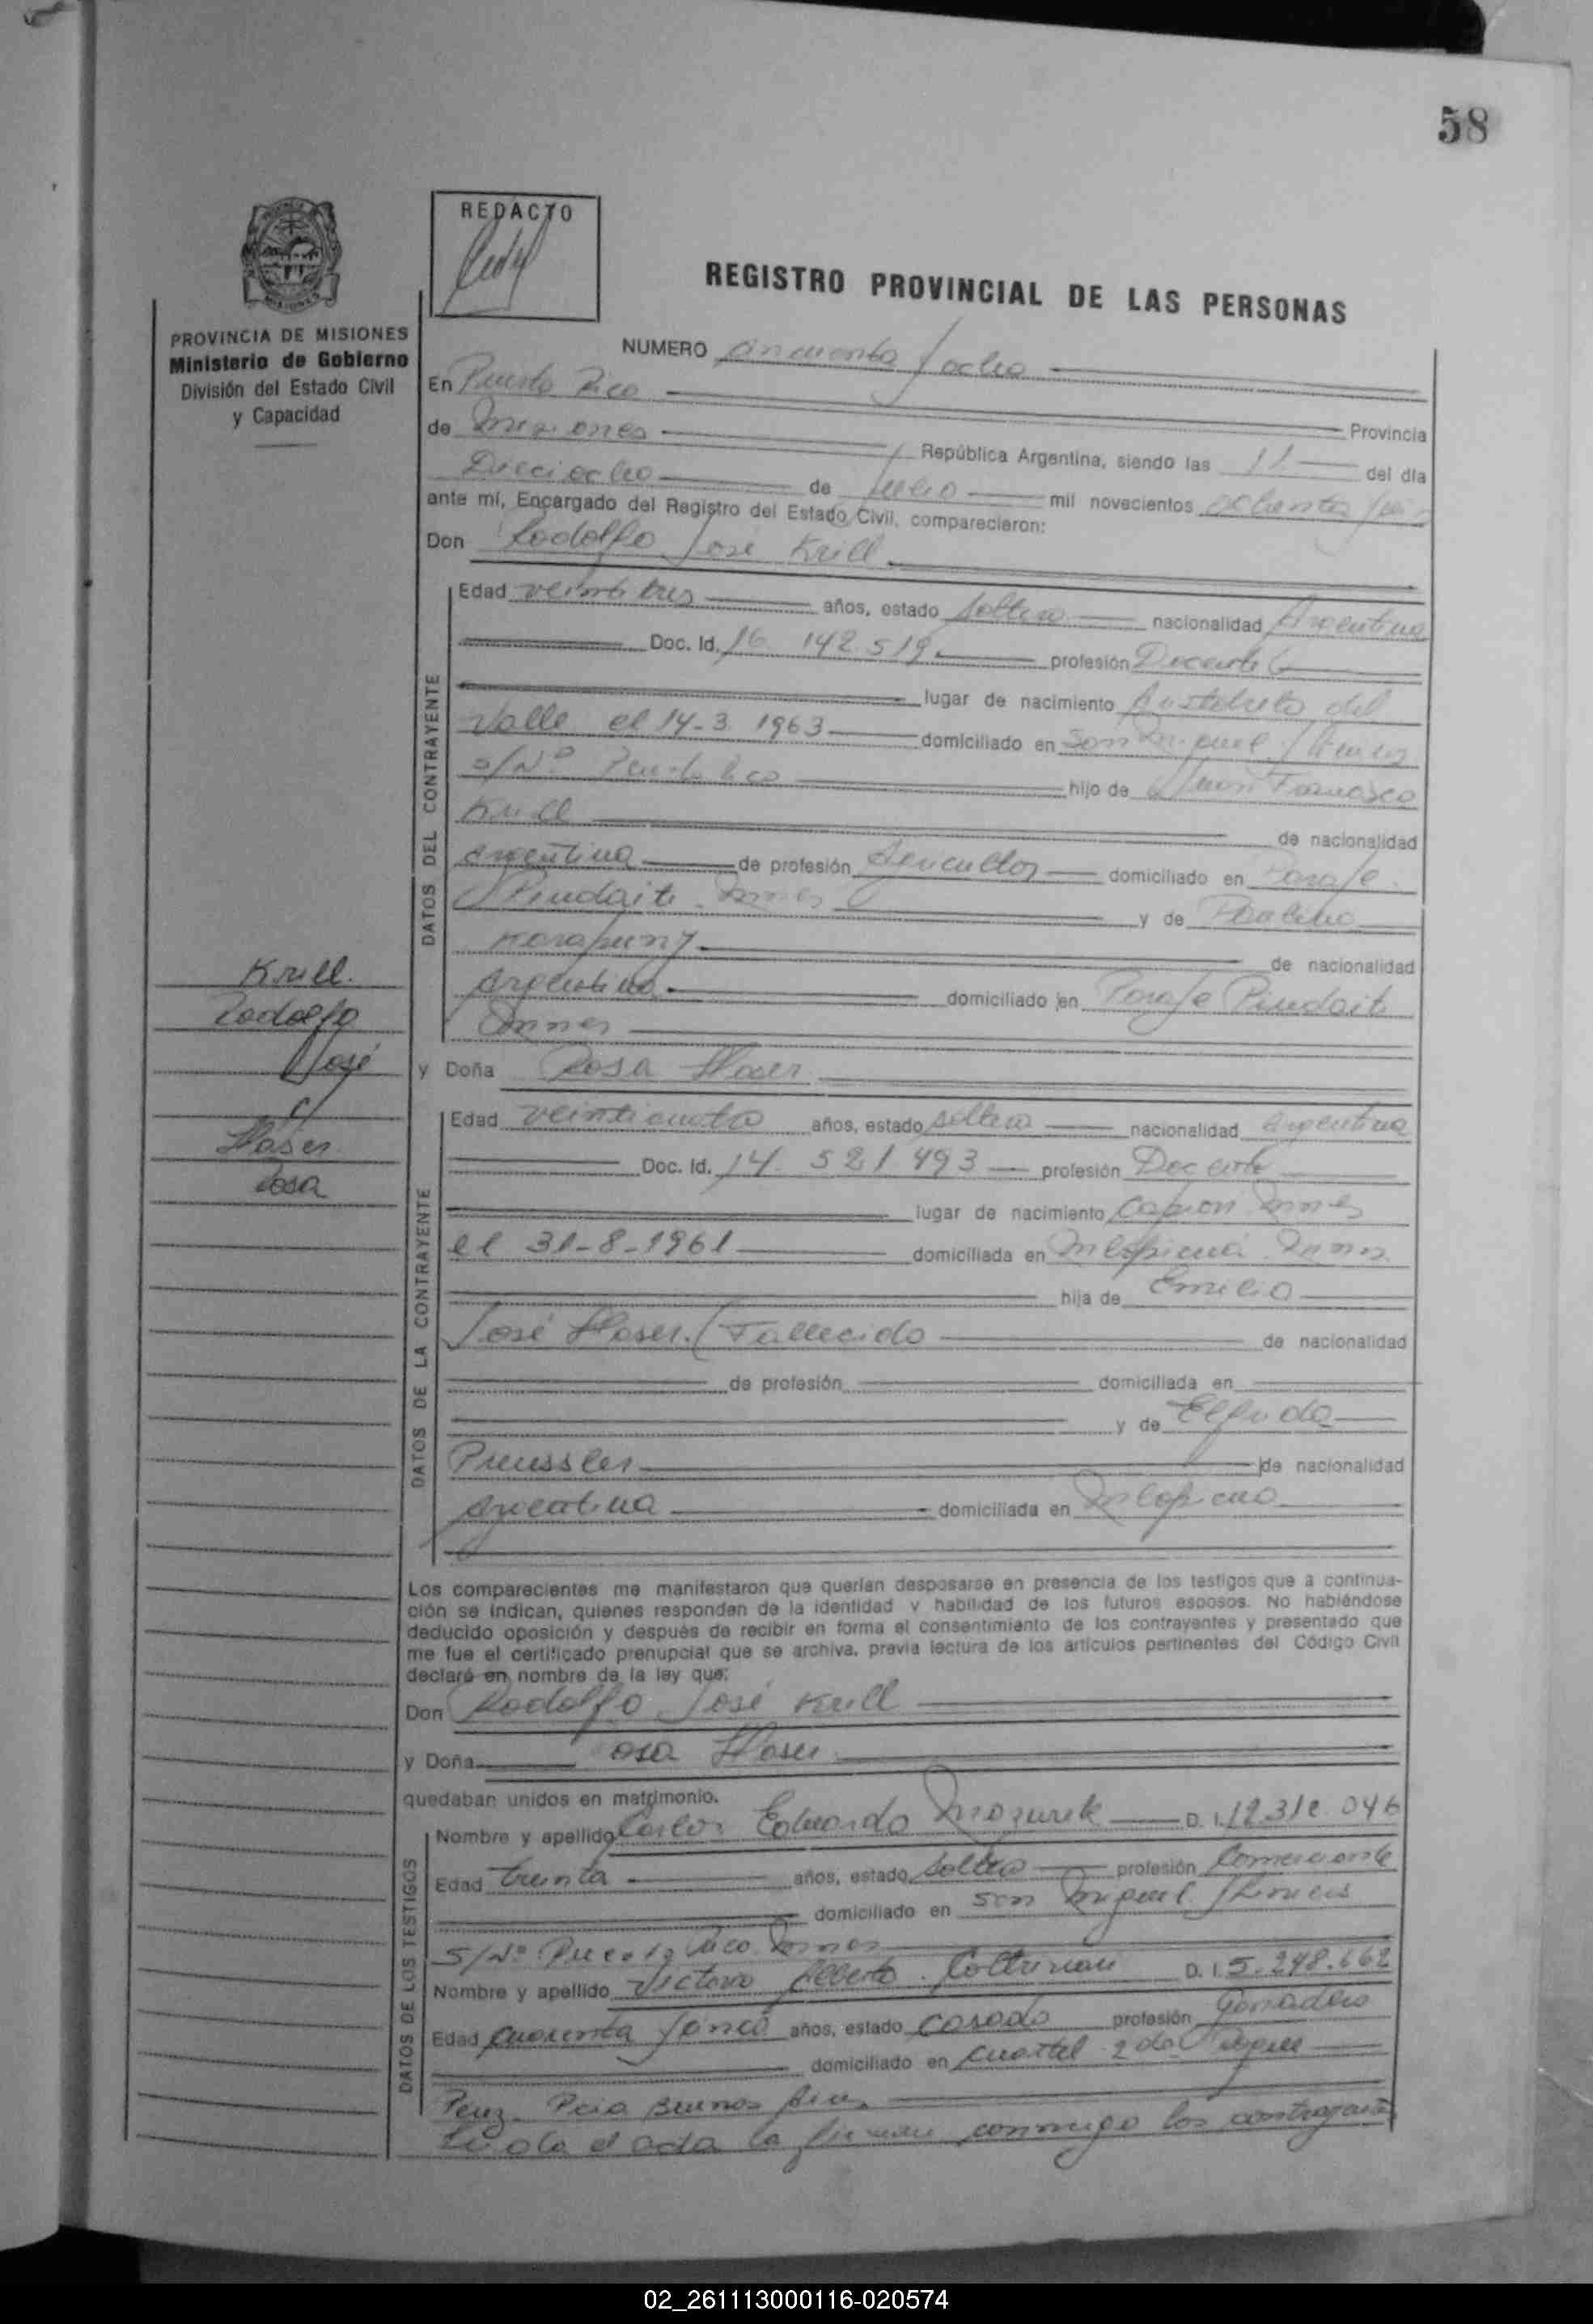 58
REDACTO
REGISTRO PROVINCIAL DE LAS PERSONAS
PROVINCIA DE MISIONES
Ministerio de Gobierno
División del Estado Civil
y Capacidad
NUMERO cincuenta y ocho
En Puerto Rico
de Misiones Provincia
República Argentina, siendo las 11 del día
Dieciocho de Julio mil novecientos ochenta y
ante mí, Encargado del Registro del Estado Civil, comparecieron:
Don Rodolfo José Krill
DATOS DEL CONTRAYENTE
Edad veintitres años, estado soltero nacionalidad Argentina
Doc. Id. 16.142.519 profesión Docente
lugar de nacimiento Aristobulo del
Valle el 14-3-1963 domiciliado en San Miguel y
S/Nº Puerto Rico hijo de Juan Francisco
Krill de nacionalidad
argentina de profesión Agricultor domiciliado en Paraje
Pindaiti Mnes y de Paulina
de nacionalidad
Argentina domiciliado en Paraje Pindaiti
Mnes
Krill
Rodolfo
José
c/
Haser
Rosa
y Doña Rosa Haser
DATOS DE LA CONTRAYENTE
Edad veinticuatro años, estado soltera nacionalidad argentina
Doc. Id. 14.521.493 profesión Docente
lugar de nacimiento Capiovi Mnes
el 31-8-1961 domiciliada en Mnes
hija de Emilio
José Haser (Fallecido de nacionalidad
de profesión domiciliada en
y de Elfrida
Preussler de nacionalidad
Argentina domiciliada en
Los comparecientes me manifestaron que querían desposarse en presencia de los testigos que a continua-
ción se indican, quienes responden de la identidad y habilidad de los futuros esposos. No habiéndose
deducido oposición y después de recibir en forma el consentimiento de los contrayentes y presentado que
me fue el certificado prenupcial que se archiva, previa lectura de los artículos pertinentes del Código Civil
declaré en nombre de la ley que:
Don Rodolfo José Krill
y Doña osa Haser
quedaban unidos en matrimonio.
DATOS DE LOS TESTIGOS
Nombre y apellido Carlos Eduardo Mazurek D. I. 12.312.046
Edad treinta años, estado soltero profesión Comerciante
domiciliado en San Miguel y
S/Nº Puerto Rico Mnes
Nombre y apellido Victorio Alberto D. I. 5.248.662
Edad cuarenta y cinco años, estado casado profesión Ganadero
domiciliado en Cuartel 2do
Pcia Buenos Aires
Leida el acta la firman conmigo los contrayentes
02_261113000116-020574